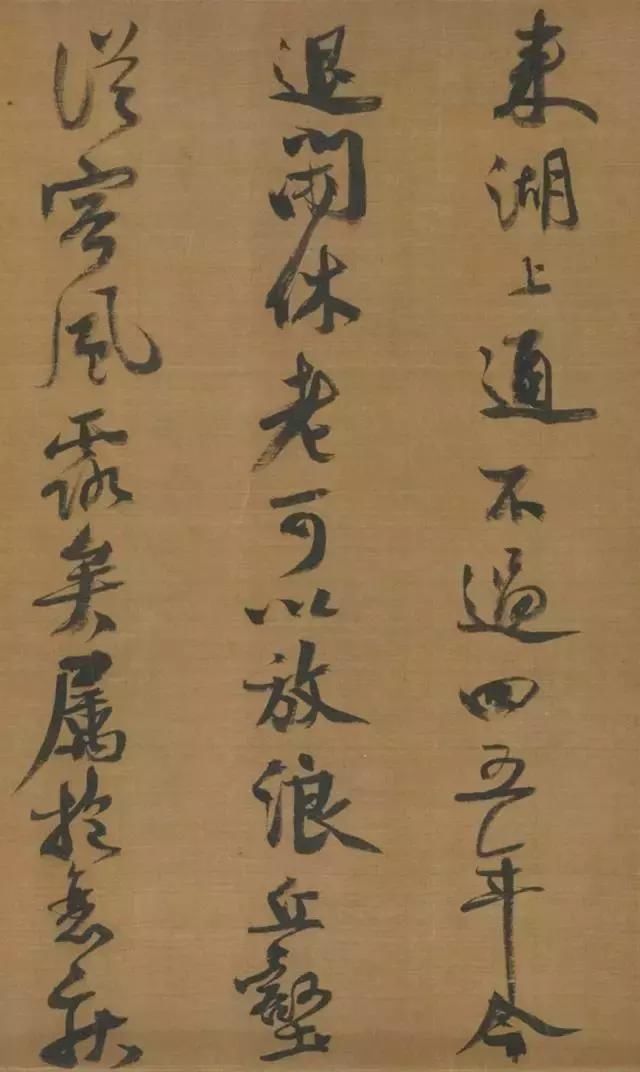 東湖上通不過四五年今
退閒休老可以放浪丘壑
從容風露矣屬